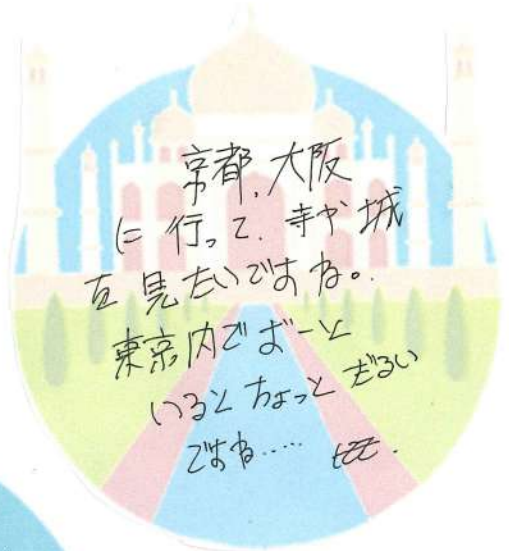 京都、大阪
に行って、寺や城
を見たいですね。
東京内でずーと
いるとちょっとだるい
ですね……